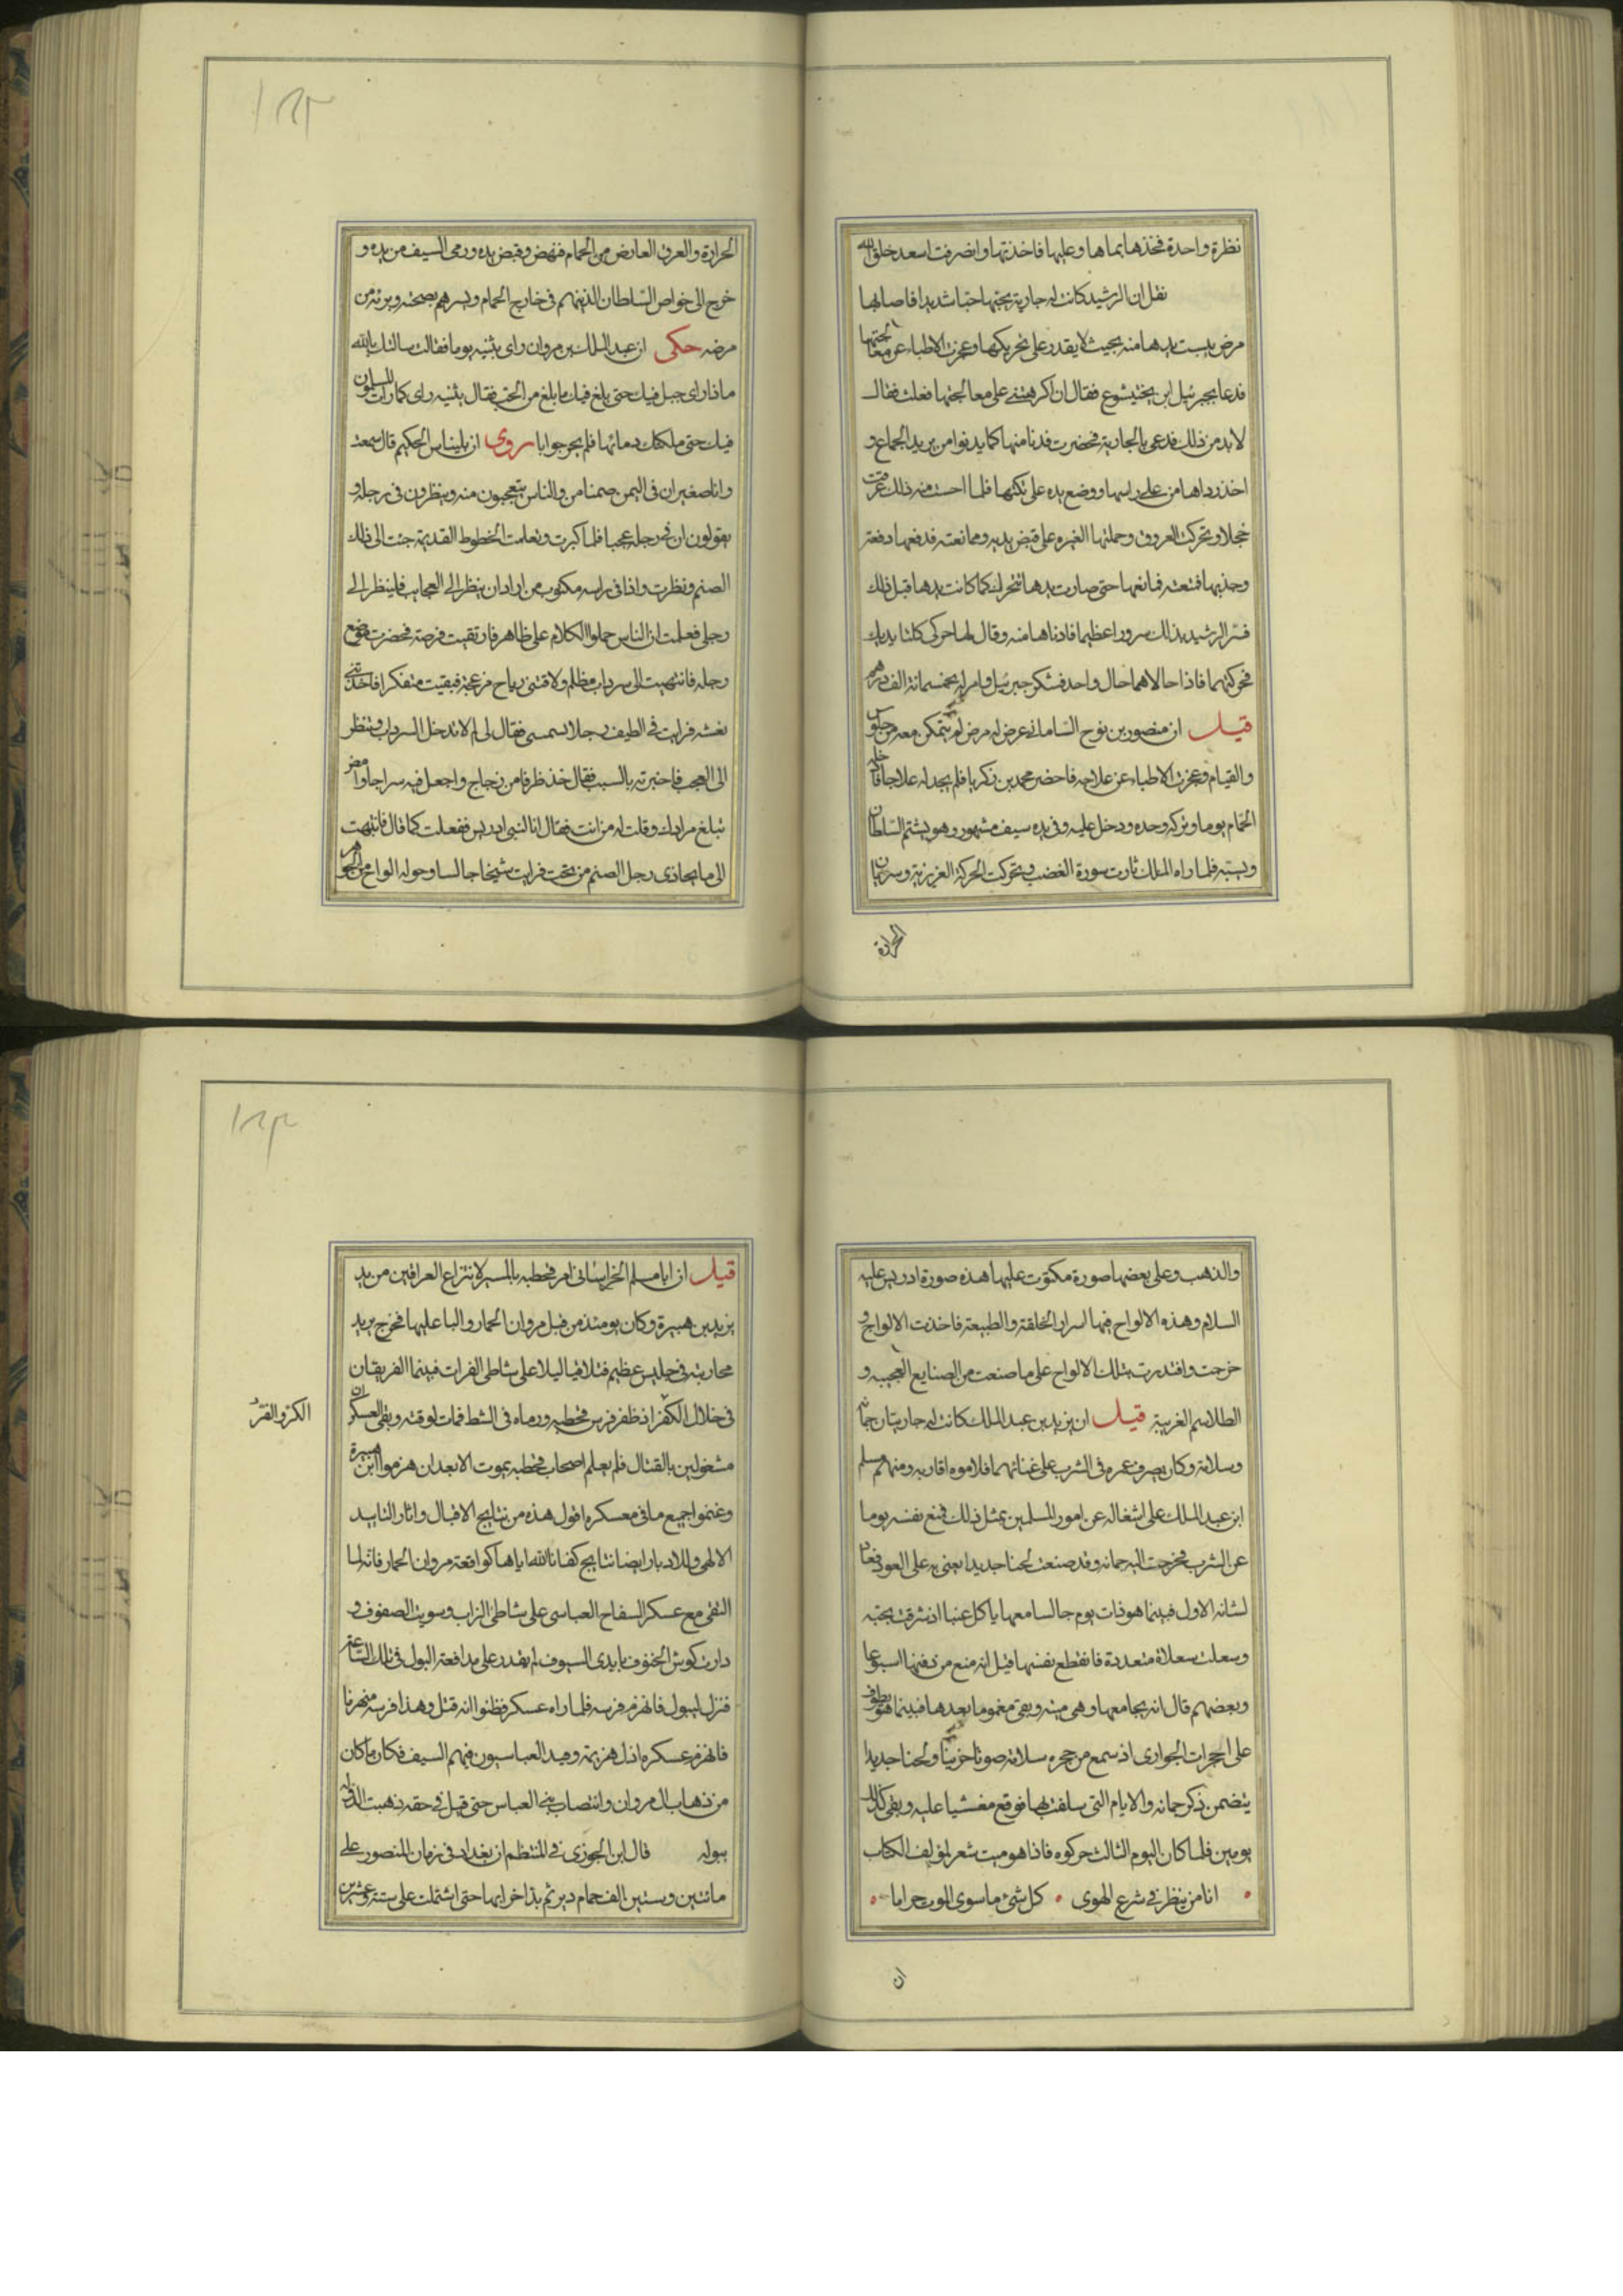 نظرة واحدة فخذها بماها وعليها فاخذتها وانصرفت اسعد خلق الله
نقل ان الرشيد كانت له جارية يحبها حبا شديدا فاصابها
مرض يبست يدها منه بحيث لا يقدر على تحريكها وعجزت الاطباء عن معالجتها
فدعا بجبرئيل ابن بختيشوع فقال ان اكرهتني على معالجتها فعلت فقال
لابد من ذلك فدعى بالجارية فحضرت فدنا منها كما يدنوا من يريد الجماع و
اخذ رداها من على راسها ووضع يده على تكتها فلما احست منه ذلك عرقت
خجلا وتحركت العروق وحملتها الغيره على قبض يديه وممانعته فدفعها دفعة
وجذبها فمنعته فمانعها حتى صارت يدها تتحرك كما كانت يدها قبل ذلك
فسر الرشيد بذلك سرورا عظيما فادناها منه وقال لها حركى كلتا يديك
فحركتهما فاذا حالاهما حال واحد فشكر جبرئيل وامر له بخمسمائة الف درهم
قيل ان منصور بن نوح السامانى عرض له مرض لم يتمكن معه من جلوس
والقيام وعجزت الاطباء عن علاجه فاحضر محمد بن زكريا فلم يجد له علاجا فادخله
الحمام يوما وتركه وحده ودخل عليه وفى يده سيف مشهور وهو يشتم السلطان
ويسبه فلما راه الملك ثارت سورة الغضب وتحركت الحركة الغريزية وسريان
الحرارة
الحرارة والعرق العارض من الحمام فنهض وقبض يده ورمى السيف من يده و
خرج الى خواص السلطان الذينهم فى خارج الحمام وبشرهم بصحته وبرئه من
مرضه حكى ان عبد الملك بن مروان راى بثنيه يوما فقالت سالتك بالله
ماذا راى جميل فيك حتى بلغ فيك ما بلغ من الحب فقال بثنيه راى كما راى المسلمون
فيك حتى ملكتك دمائها فلم يحر جوابا روى ان بليناس الحكيم قال سمعت
وانا صغير ان فى اليمن صنما من والناس يتعجبون منه وينظرون فى رجله و
يقولون ان تحت رجله عجبا فلما كبرت وتعلمت الخطوط القديمة جئت الى ذلك
الصنم ونظرت واذا فى راسه مكتوب من اراد ان ينظر الى العجايب فلينظر الى
رجلى فعلمت ان الناس حملوا الكلام على ظاهر فارتقبت فرصة فحضرت موضع
رجله فانتهيت الى سرداب مظلم ولاقتنى رياح مزعجة فبقيت متفكرا فاخذتنى
نعشه فرايت فى الطيف رجلا يسمى فقال لى لم لا تدخل السرداب وتنظر
الى العجب فاخبرته بالسبب فقال خذ ظرفا من زجاج واجعل فيه سراجا وامض
تبلغ مرادك وقلت له من انت فقال انا النبى ادريس ففعلت كما قال فانتهت
الى ما يحاذى رجل الصنم من تحت فرايت شيخا جالسا وحوله الواح من الجواهر
والذهب وعلى بعضها صورة مكتوب عليها هذه صورة ادريس عليه
السلام وهذه الالواح فيها اسرار الخلقة والطبيعة فاخذت الالواح و
خرجت واقتدرت بتلك الالواح على ما صنعت من الصنايع العجيبه و
الطلاسم الغريبة قيل ان يزيد بن عبد الملك كانت له جاريتان جمانه
وسلامة وكان يصرف عمره فى الشرب على غنائهما فلاموه اقاربه ومنهم مسلم
ابن عبد الملك على اشغاله عن امور المسلمين بمثل ذلك فمنع نفسه يوما
عن الشرب فخرجت اليه جمانه وقد صنعت لحنا جديدا يغنى به على العود فعاد
لشانه الاول فبينما هو ذات يوم جالسا معها ياكل عنبا اذ شرقت بحبه
وسعلت سعلاة متعددة فانقطع نفسها قيل انه منع من دفنها اسبوعا
وبعضهم قال انه يجامعها وهى ميته وبقى مغموما بعدها فبينما هو يطوف
على الحجرات الجوارى اذ سمع من حجره سلامة صوتا حزينا ولحنا جديدا
يتضمن ذكر جمانه والايام التى سلفت بها فوقع مغشيا عليه وبقى كذلك
يومين فلما كان اليوم الثالث حركوه فاذا هو ميت شعر لمؤلف الكتاب
انا من ينظر فى شرع الهوى كل شئ ما سوى الموت حراما
ان
قيل ان ابا مسلم الخراسانى امر قحطبه بالمسير لانتزاع العراقين من يد
يزيد بن هبيرة وكان يومئذ من قبل مروان الحمار واليا عليها فخرج يريد
محاربته فى جليس عظيم فتلاقيا ليلا على شاطى الفرات فبينما الفريقان
فى خلال الكفر اذ ظفر فرس قحطبه ورماه فى الشط فمات لوقته وبقى العسكران
الكر والفر
مشغولين بالقتال فلم يعلم اصحاب قحطبه بموت الا بعد ان هزموا ابن هبيرة
وغنموا جميع ما فى معسكره اقول هذه من نتايج الاقبال واثار التاييد
الالهى وللادبار ايضا نتايج كفانا الله اياها كواقعة مروان الحمار فانه لما
التقى مع عسكر السفاح العباسى على شاطى الزاب وسويت الصفوف و
دارت كوش الحتوف بايدى السيوف لم يقدر على مدافعة البول فى تلك الساعة
فنزل ليبول فانهزم فرسه فلما راه عسكر فظنوا انه قتل وهذا فرسه منهزما
فانهزم عسكره اذل هزيمة وضيد العباسيون فيهم السيف فكان ما كان
من ذهاب ال مروان وانتصاب بنى العباس حتى قيل فى حقه ذهبت الدولة
ببوله قال ابن الجوزى فى المنتظم ان بغداد فى زمان المنصور على
مائتين وستين الف حمام دير ثم بدا خرابها حتى اشتملت على ستة وعشرين